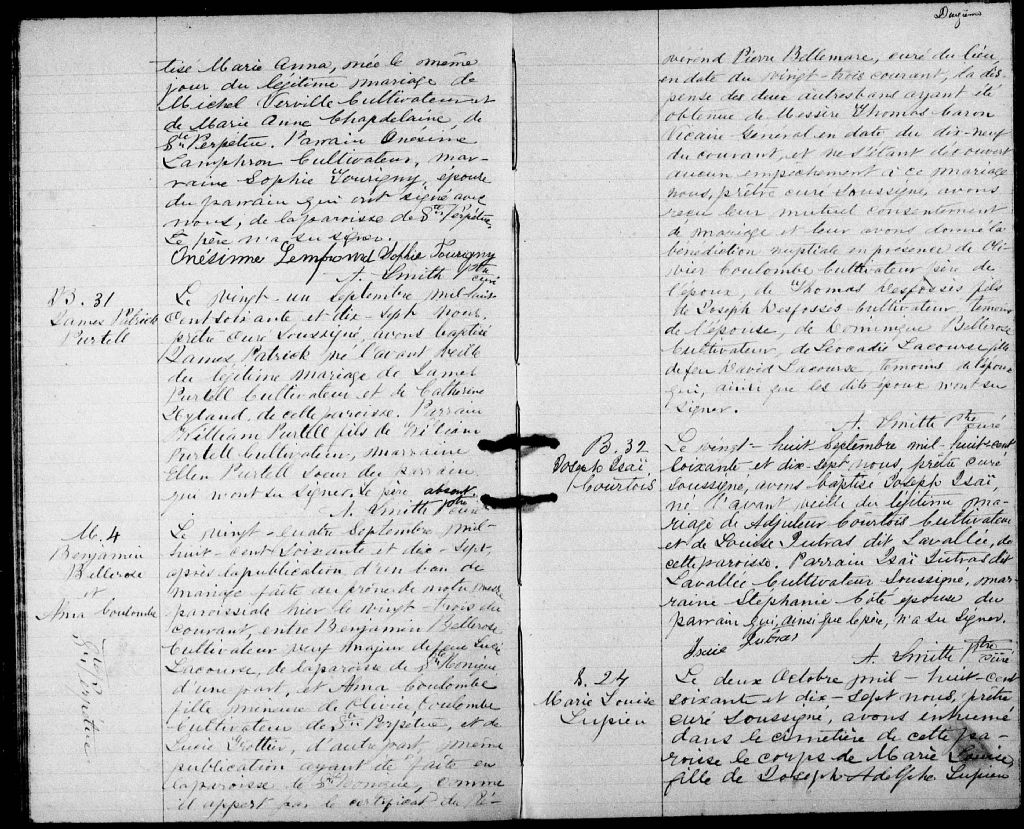 tisé Marie Anna, née le même
jour du légitime mariage de
Michel Verville Cultivateur et
de Marie Anne Chapdelaine, de
Ste Perpétue. Parrain Onésime
Lamphron Cultivateur, mar-
raine Sophie Tourigny, épouse
du parrain qui ont signé avec
nous, de la paroisse de Ste Perpétue,
Le père n'a su signer.
Onésimme Lemfrond Sophie Tourigny
A. Smith Ptre
curé
B. 31
James Patrick
Purtell
Le vingt-un Septembre mil-huit-
cent soixante et dix-sept nous,
prêtre curé soussigné, avons baptisé
James Patrick né l'avant veille
du légitime mariage de James
Purtell Cultivateur et de Catherine
Hyland, de cette paroisse. Parrain
William Purtell fils de William
Purtell Cultivateur, marraine
Ellen Purtell soeur du parrain
qui n'ont su signer. Le père absent.
A. Smith Ptre
curé
M. 4
Benjamin
Bellerose
et
Alma Coulombe
Ste Perpétue
Le vingt-quatre Septembre mil-
huit-cent soixante et dix-sept,
après la publication d'un ban de
mariage faite au prône de notre messe
paroissiale hier le vingt-trois du
courant, entre Benjamin Bellerose
Cultivateur veuf majeur de feue Lucie
Lacourse, de la paroisse de Ste Monique
d'une part, et Alma Coulombe
fille mineure de Olivier Coulombe
Cultivateur de Ste Perpétue, et de
Lucie Trottier, d'autre part, même
publication ayant été faite en
la paroisse de Ste Monique, comme
il appert par le certificat du Ré-
Onzième
vérend Pierre Bellemare, curé du lieu,
en date du vingt-trois courant, la dis-
pense des deux autres bans ayant été
obtenue de Messire Thomas Caron
Vicaire Général en date du dix-neuf
du courant, et ne s'étant découvert
aucun empêchement à ce mariage
nous, prêtre curé soussigné, avons
reçu leur mutuel consentement
de mariage et leur avons donné la
bénédiction nuptiale en présence de Oli-
vier Coulombe Cultivateur père de
l'époux, de Thomas Desfossés fils
de Joseph Desfossés Cultivateur, témoins
de l'épouse, de Domingue Bellerose
Cultivateur, de Léocadie Lacourse fille
de feu David Lacourse, témoins de l'époux
qui, ainsi que les dits époux n'ont su
signer.
A. Smith Ptre
curé
B. 32
Joseph Isaï
Courtois
Le vingt-huit Septembre mil-huit-cent
soixante et dix-sept nous, prêtre curé
soussigné, avons baptisé Joseph Isaï
né l'avant veille du légitime ma-
riage de Adjuteur Courtois Cultivateur
et de Louise Jutras dit Lavallée, de
cette paroisse. Parrain Isaï Jutras dit
Lavallée Cultivateur soussigné, mar-
raine Stephanie Côté épouse du
parrain qui, ainsi que le père, n'a su signer.
Isaie Jutras
A. Smith Ptre
curé
S. 24
Marie Louise
Lupien
Le deux Octobre mil-huit-cent
soixante et dix-sept nous, prêtre
curé soussigné, avons inhumé
dans le cimetière de cette pa-
roisse le corps de Marie Louise,
fille de Joseph Adolphe Lupien